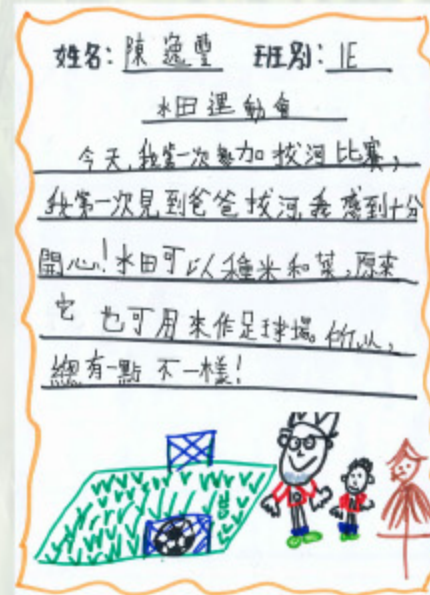 姓名：陳逸豐 班別：1E
水田運動會
今天，我第一次參加拔河比賽，
我第一次見到爸爸拔河，我感到十分
開心！水田可以種米和菜，原來
它也可用來作足球場。所以，
總有一點不一樣！